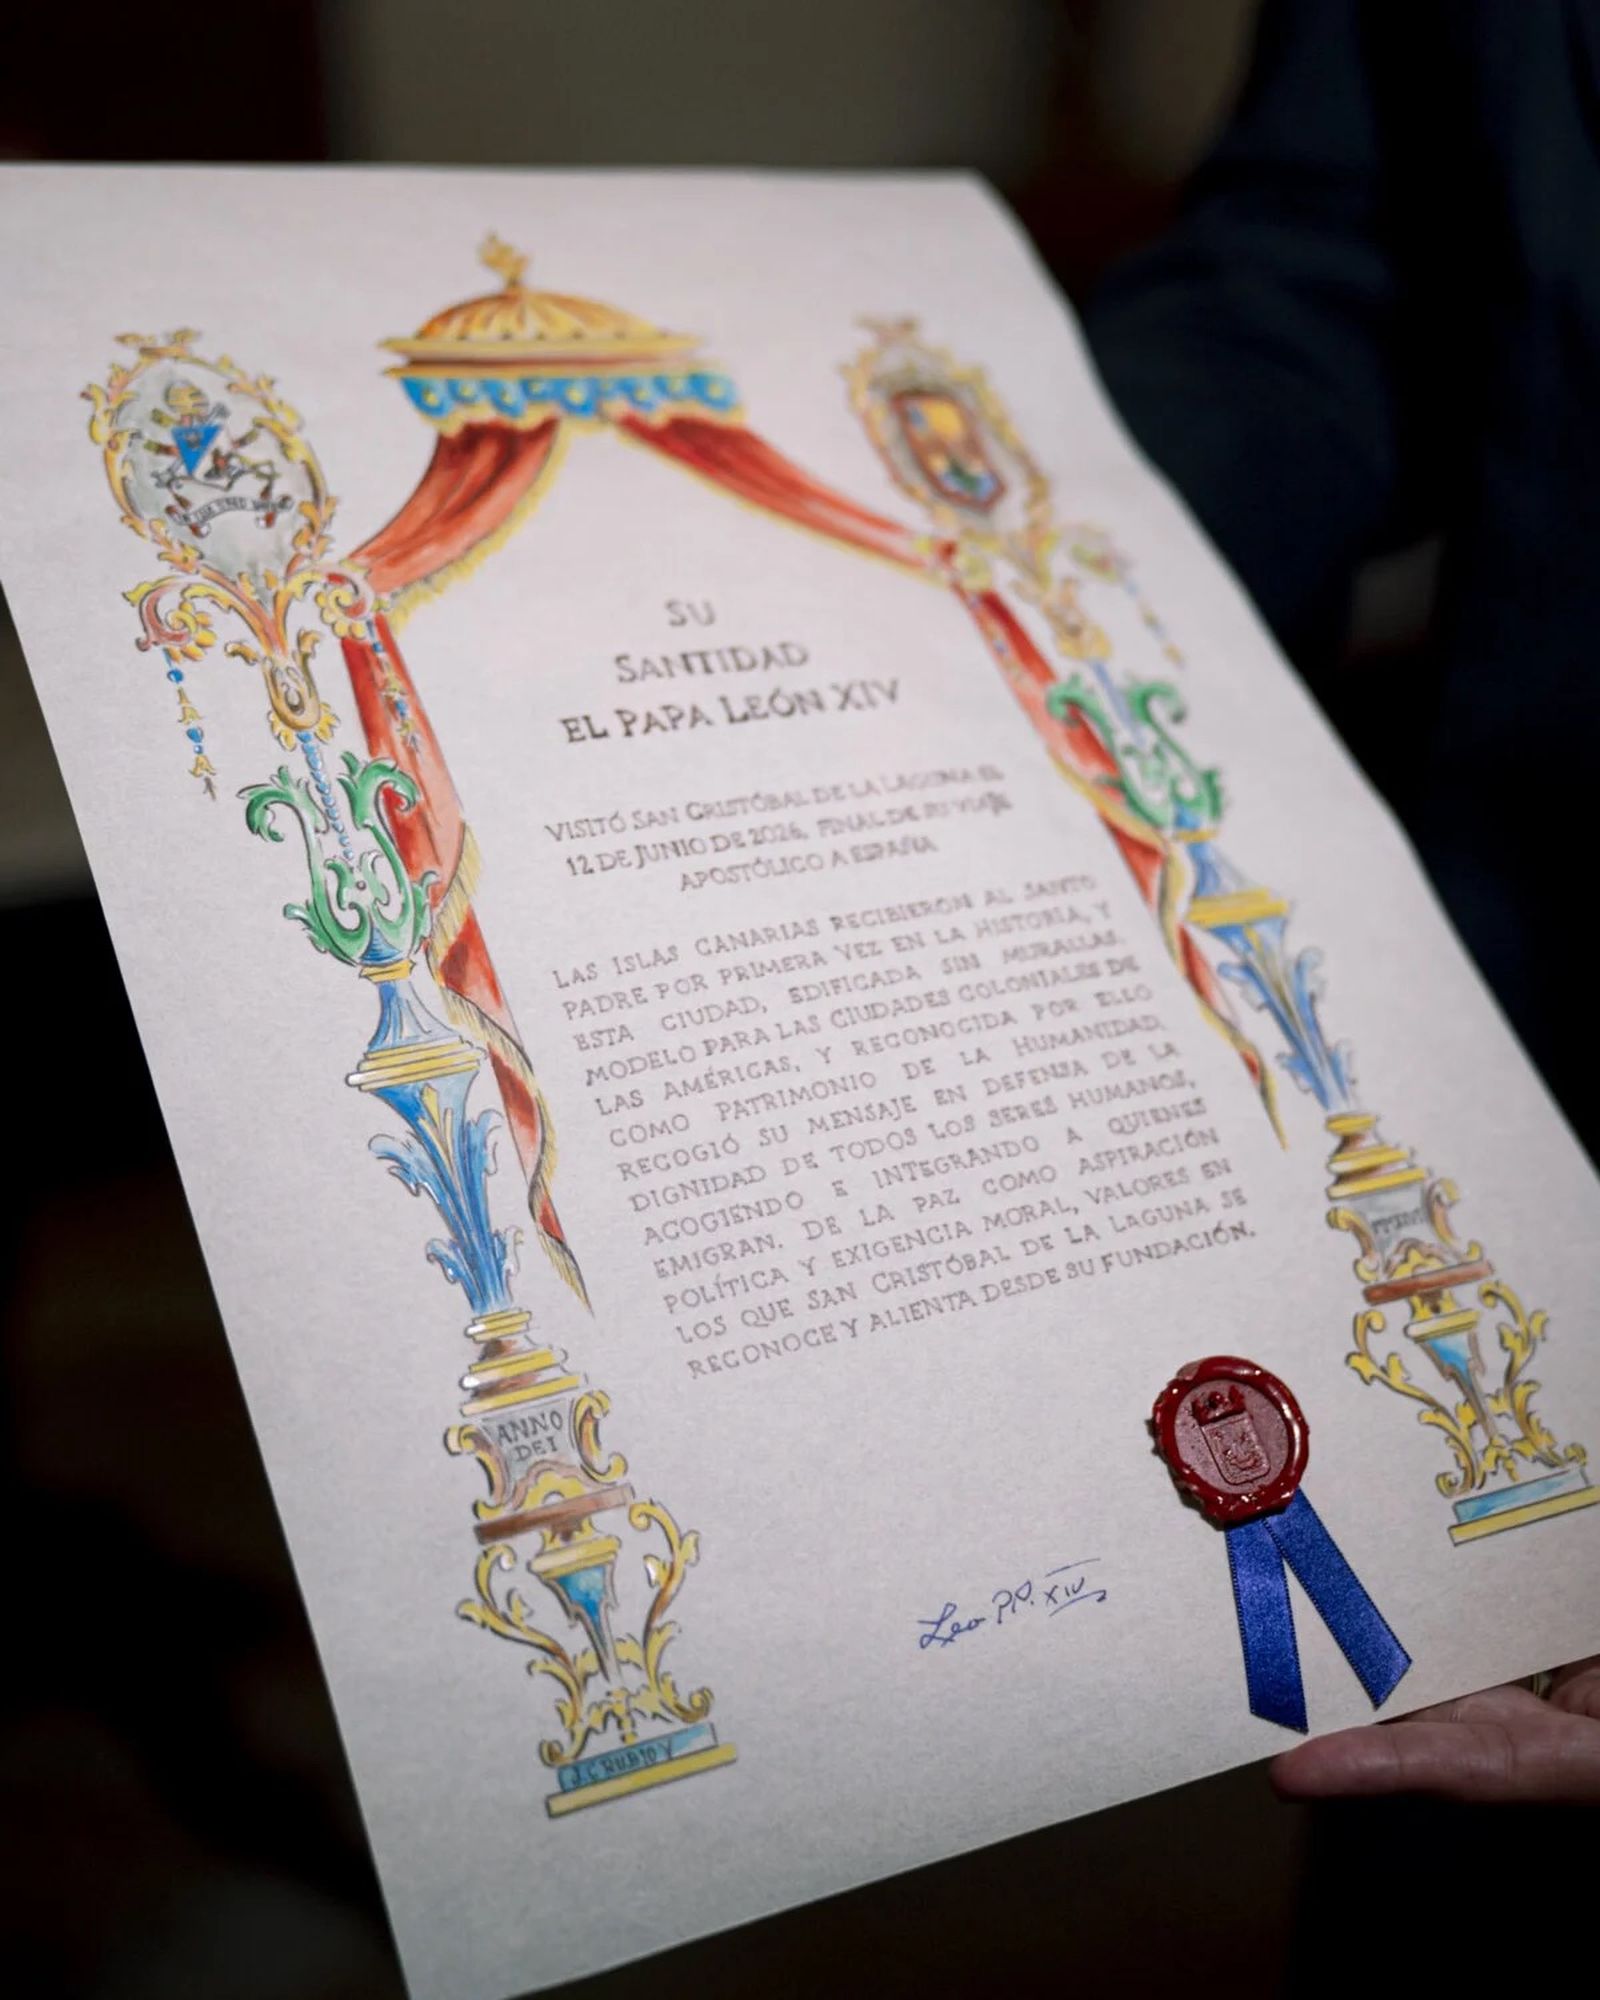 SU
SANTIDAD
EL PAPA LEÓN XIV
VISITÓ SAN CRISTÓBAL DE LA LAGUNA EL
12 DE JUNIO DE 2026, FINAL DE SU VIAJE
APOSTÓLICO A ESPAÑA
LAS ISLAS CANARIAS RECIBIERON AL SANTO
PADRE POR PRIMERA VEZ EN LA HISTORIA, Y
ESTA CIUDAD, EDIFICADA SIN MURALLAS,
MODELO PARA LAS CIUDADES COLONIALES DE
LAS AMÉRICAS, Y RECONOCIDA POR ELLO
COMO PATRIMONIO DE LA HUMANIDAD,
RECOGIÓ SU MENSAJE EN DEFENSA DE LA
DIGNIDAD DE TODOS LOS SERES HUMANOS,
ACOGIENDO E INTEGRANDO A QUIENES
EMIGRAN. DE LA PAZ COMO ASPIRACIÓN
POLÍTICA Y EXIGENCIA MORAL, VALORES EN
LOS QUE SAN CRISTÓBAL DE LA LAGUNA SE
RECONOCE Y ALIENTA DESDE SU FUNDACIÓN.
ANNO
DEI
Leo P.P. XIV
J.C RUBIO Y